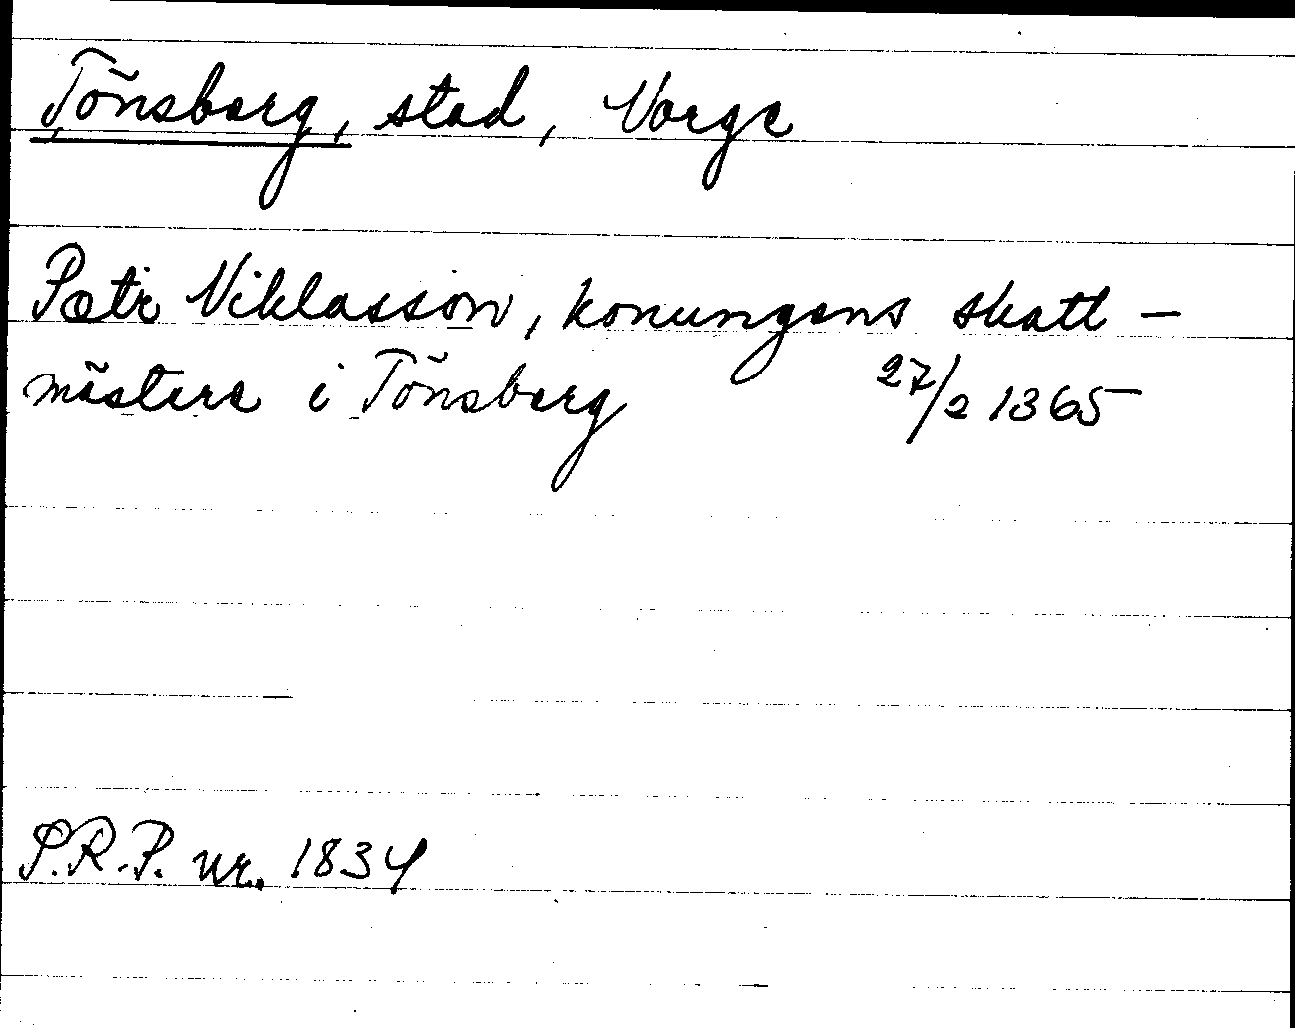 Tönsberg, stad, Norge
Petr Niklasson, konungens skatt-
mästere i Tönsberg 27/2 1365
S.R.P. nr. 1834